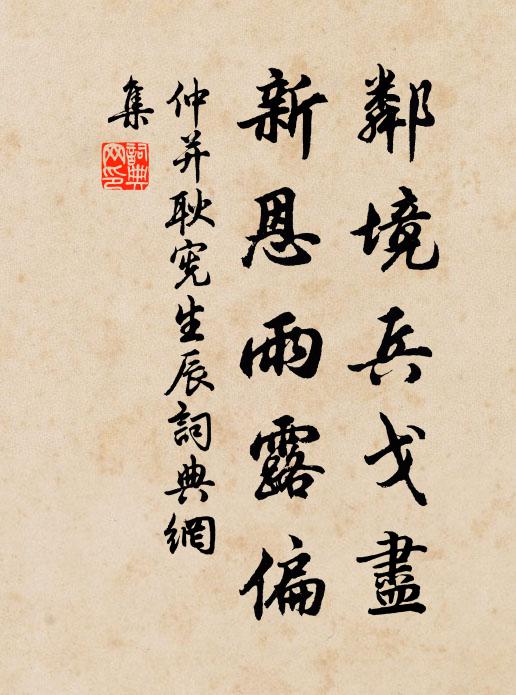 鄰境兵戈盡
新恩雨露偏
仲并耿宪生辰詞典網
集
詞典網印